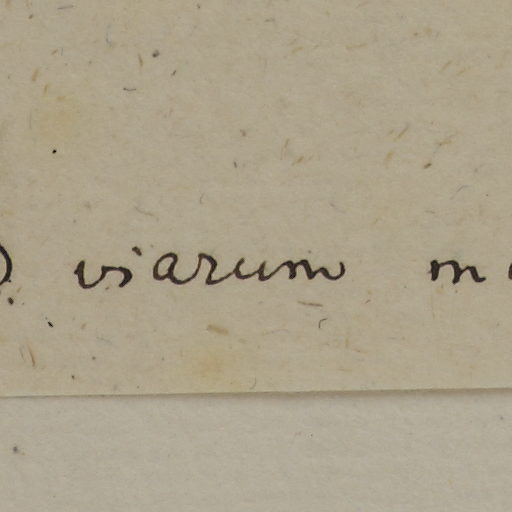 viarum m